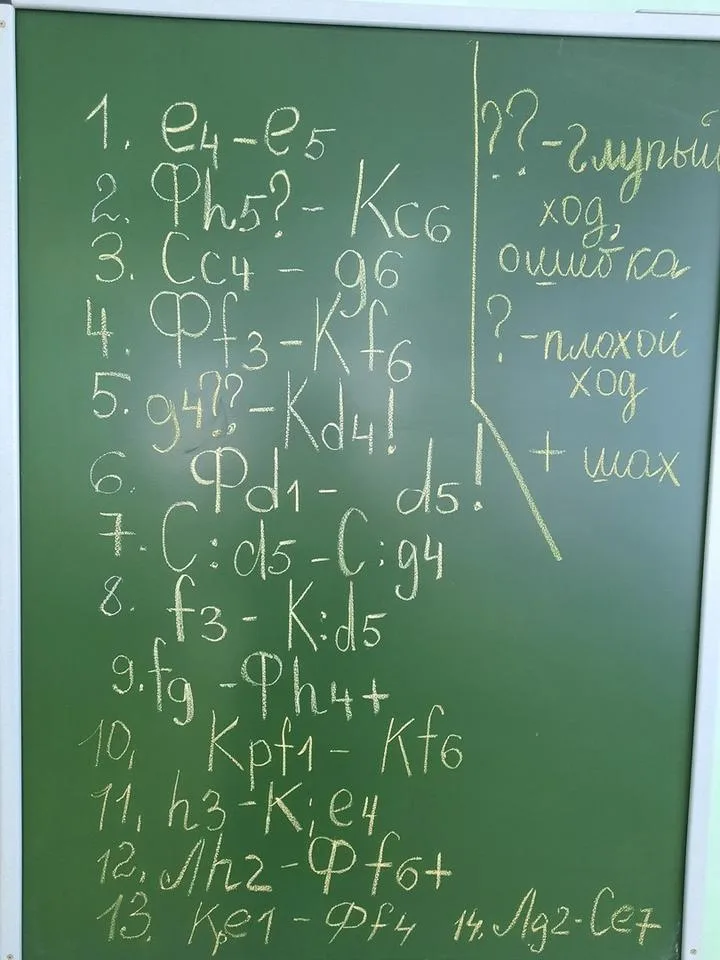 1. e4-e5
2. Фh5?- Кc6
3. Сc4 - g6
4. Фf3-Кf6
5. g4??-Кd4!
6. Фd1- d5!
7. С:d5-С:g4
8. f3- К:d5
9. fg -Фh4+
10. Крf1- Кf6
11. h3-К:e4
12. Лh2-Фf6+
13. Крe1-Фf4 14. Лg2-Сe7
??-глупый
ход,
ошибка
?-плохой
ход
+ шах